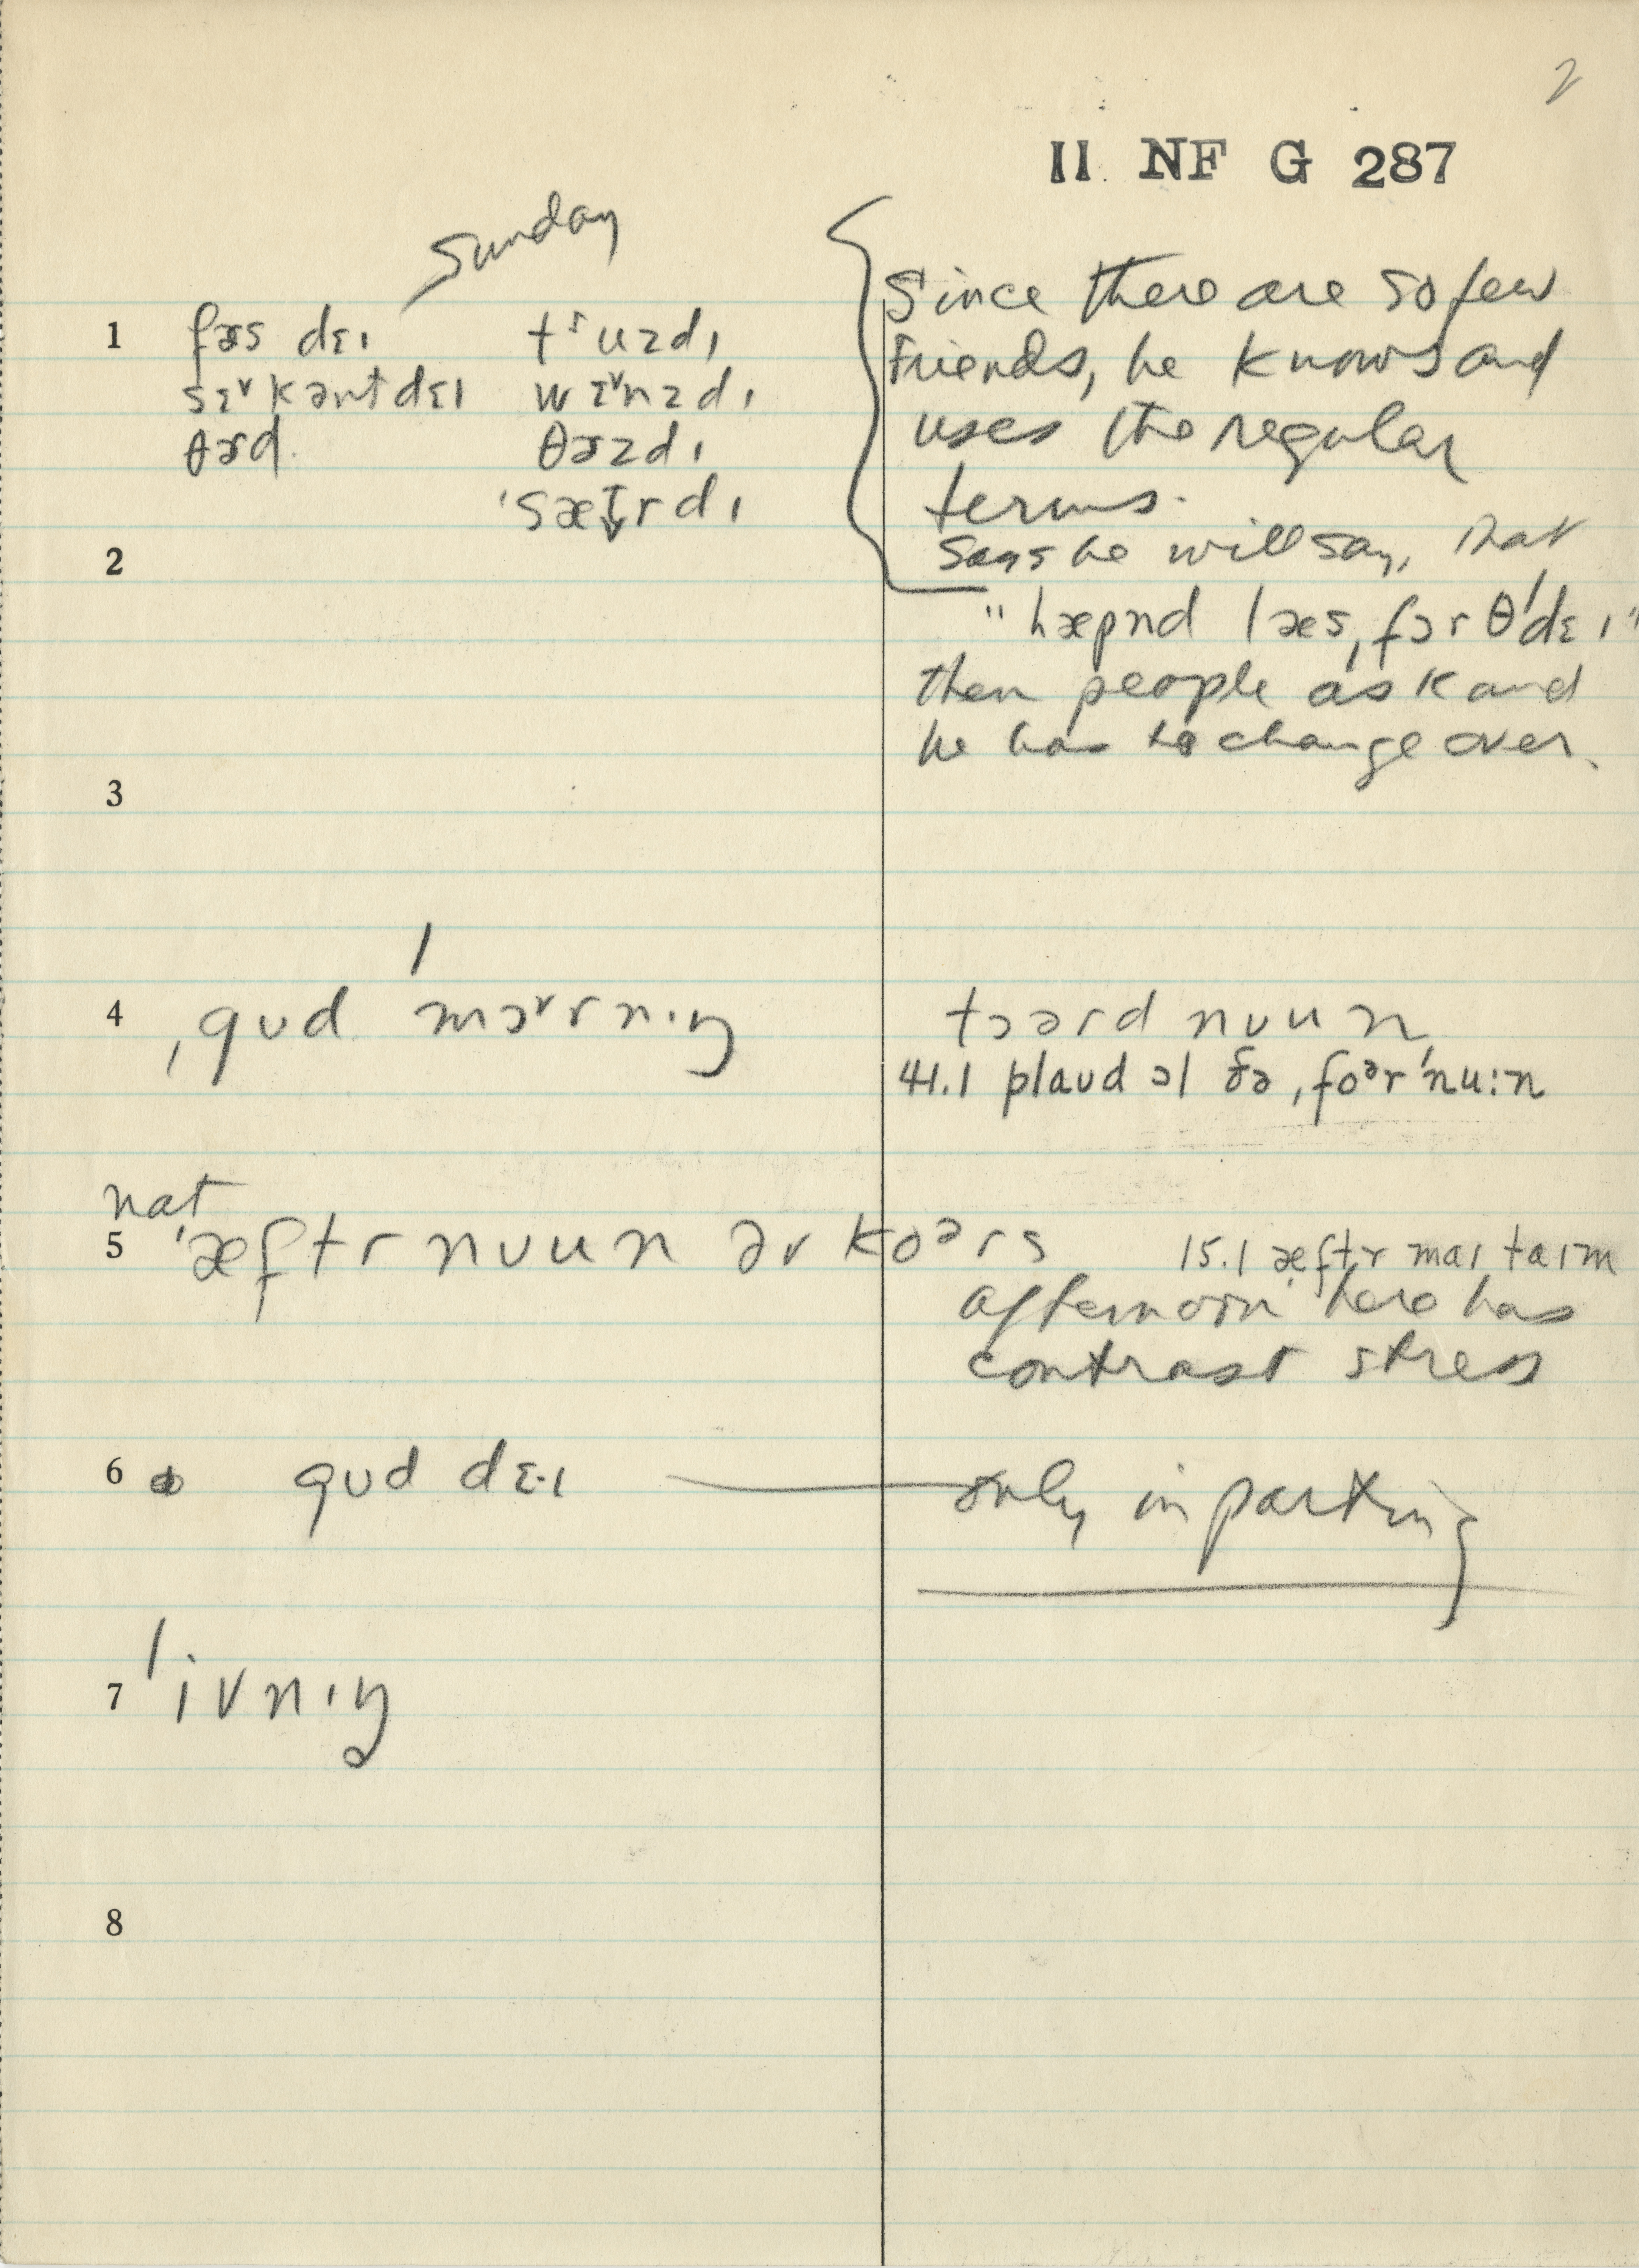 2
II NF G 287
Sunday
1 fɚs dɛɪ tˢuzdɪ
sɛ˅kənt dɛɪ wɛ˅nzdɪ
θɚd. θɚzdɪ
ˈsætrdɪ
Since there are so few
Friends, he knows and
uses the regular
terms.
Says he will say, that
"hæpnd læs ˌfɔr θˈdɛɪ"
then people ask and
he has to change over.
2
3
4 ˌgʊd ˈmɔ˅rnɪŋ tɔərd nʊun
41.1 plaʊd ɔl ðə ˌfoᵊrˈnu:n
nat
5 ˈæftrnʊun əv koᵊrs 15.1 æftr maɪ taɪm
afternoon here has
contrast stress
6 gʊd dɛ·ɪ — only in parting
7 ˈivnɪŋ
8